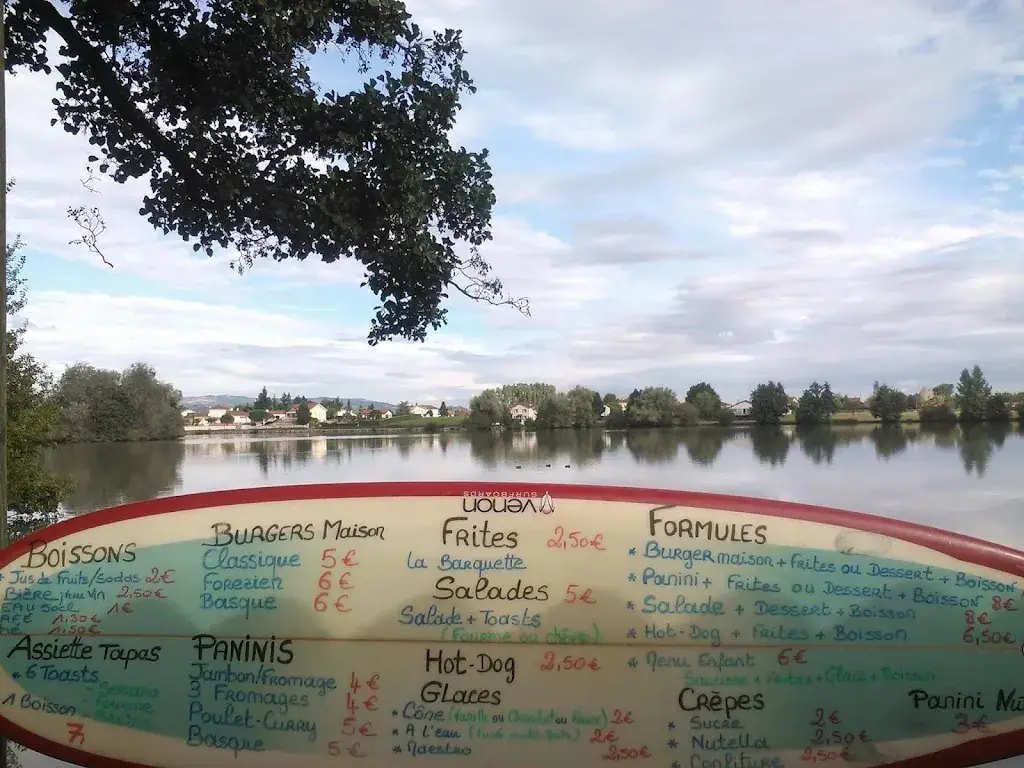 venon
SURFBOARDS
BOISSONS
Jus de Fruits/Sodas 2€
Bière Vin 2,50€
EAU 50CL 1€
1,50€
1,50€
Assiette Tapas
* 6 Toasts
1 Boisson
7€
BURGERS MAISON
Classique 5€
Forezien 6€
Basque 6€
PANINIS
Jambon/Fromage 4€
3 Fromages 4€
Poulet-Curry 5€
Basque 5€
Frites 2,50€
La Barquette
Salades 5€
Salade + Toasts
(Fourme ou chèvre)
Hot-Dog 2,50€
Glaces
* Cône (Vanille ou Chocolat ou Fraise) 2€
* A l'eau 2€
* Maestro 2,50€
FORMULES
* Burger maison + Frites ou Dessert + Boisson
* Panini + Frites ou Dessert + Boisson 8€
* Salade + Dessert + Boisson 8€
* Hot-Dog + Frites + Boisson 6,50€
* Menu Enfant 6€
Saucisse + Frites + Glace + Boisson
Crêpes
* Sucre 2€
* Nutella 2,50€
* Confiture 2,50€
Panini Nu
3€